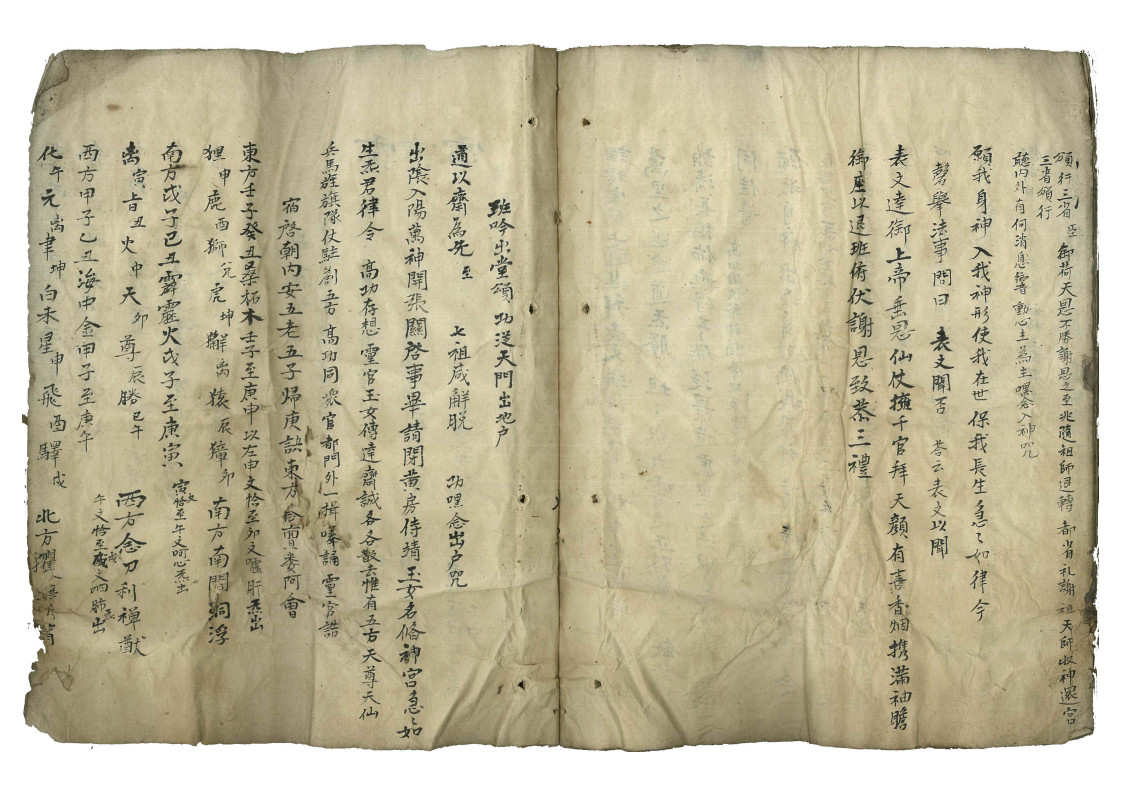 頒行三省 臣 御荷天恩不勝謝恩之至 兆隨祖師退轉 都省礼謝 祖天師收神還宮
三省頒行
聽內外有何消息響動心主為主嘿念入神咒
願我身神 入我神形 使我在世 保我長生 急〻如律令
磬舉法事問曰 表文聞否 答云表文以聞
表文達御 上帝垂恩 仙仗擁千官拜 天顏有喜香烟携滿袖瞻
御座以退班俯伏謝恩致恭三禮
班吟出堂頌 功送天門出地户
道以齋為先 至 七祖咸解脱 功嘿念出户咒
出陰入陽萬神開張關啓事畢請閉黃房侍靖玉女名脩神宮急〻如
生炁君律令 高功存想 靈官玉女傳達齋誠各各散去惟有五方天尊天仙
兵馬旌旗隊仗駐劄五方 高功同衆官都門外一揖嗶誦靈官誥
宿啓朝內安五老五子歸庚訣東方 婁阿會
東方壬子癸丑桑柘木壬子至庚申以左申文恰至卯文噓肝炁出
狸申鹿酉獅戌虎坤獬离猿辰獐卯 南方南閻洞浮
南方戊子己丑霹靂火戊子至庚寅 寅文恰至午文呵心炁出
离寅旨丑火申天卯尊辰勝巳午 西方念刀利禅猷
西方甲子乙丑海中金甲子至庚午 午文恰至戌文呬肺炁出
化午元离聿坤白禾星申飛酉驛戌 北方